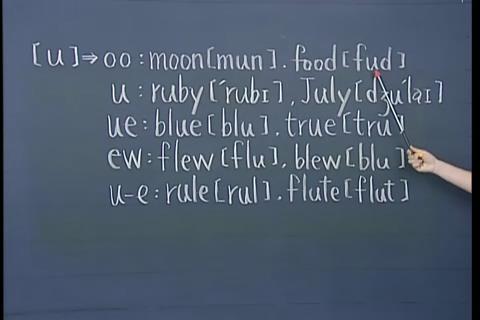 [u]⇒oo:moon[mun].food[fud]
u:ruby[ˊrubɪ],July[dʒuˊlaɪ]
ue:blue[blu].true[tru]
ew:flew[flu],blew[blu]
u-e:rule[rul].flute[flut]